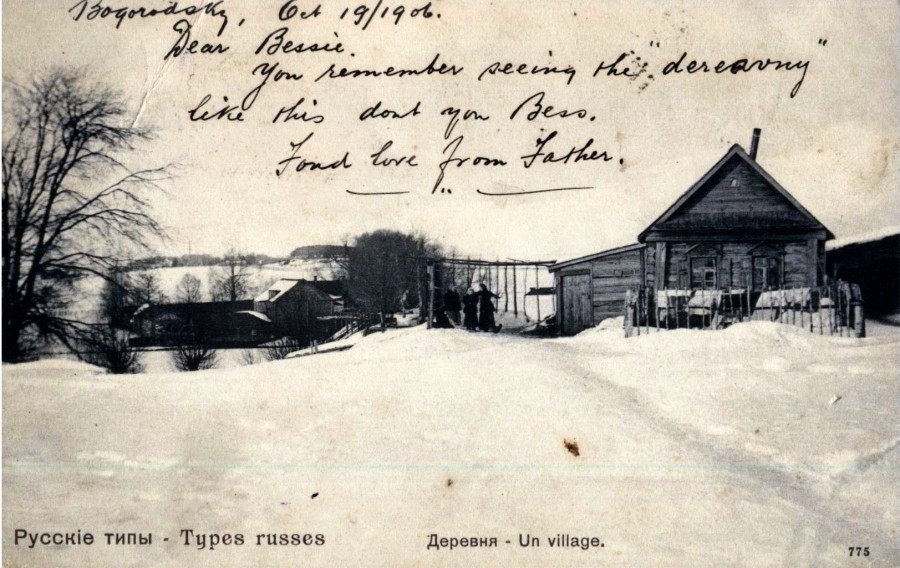 Bogorodsky, Oct 19/1906.
Dear Bessie.
You remember seeing the "derevny"
like this dont you Bess.
Fond love from Father.
Русскіе типы - Types russes
Деревня - Un village.
775